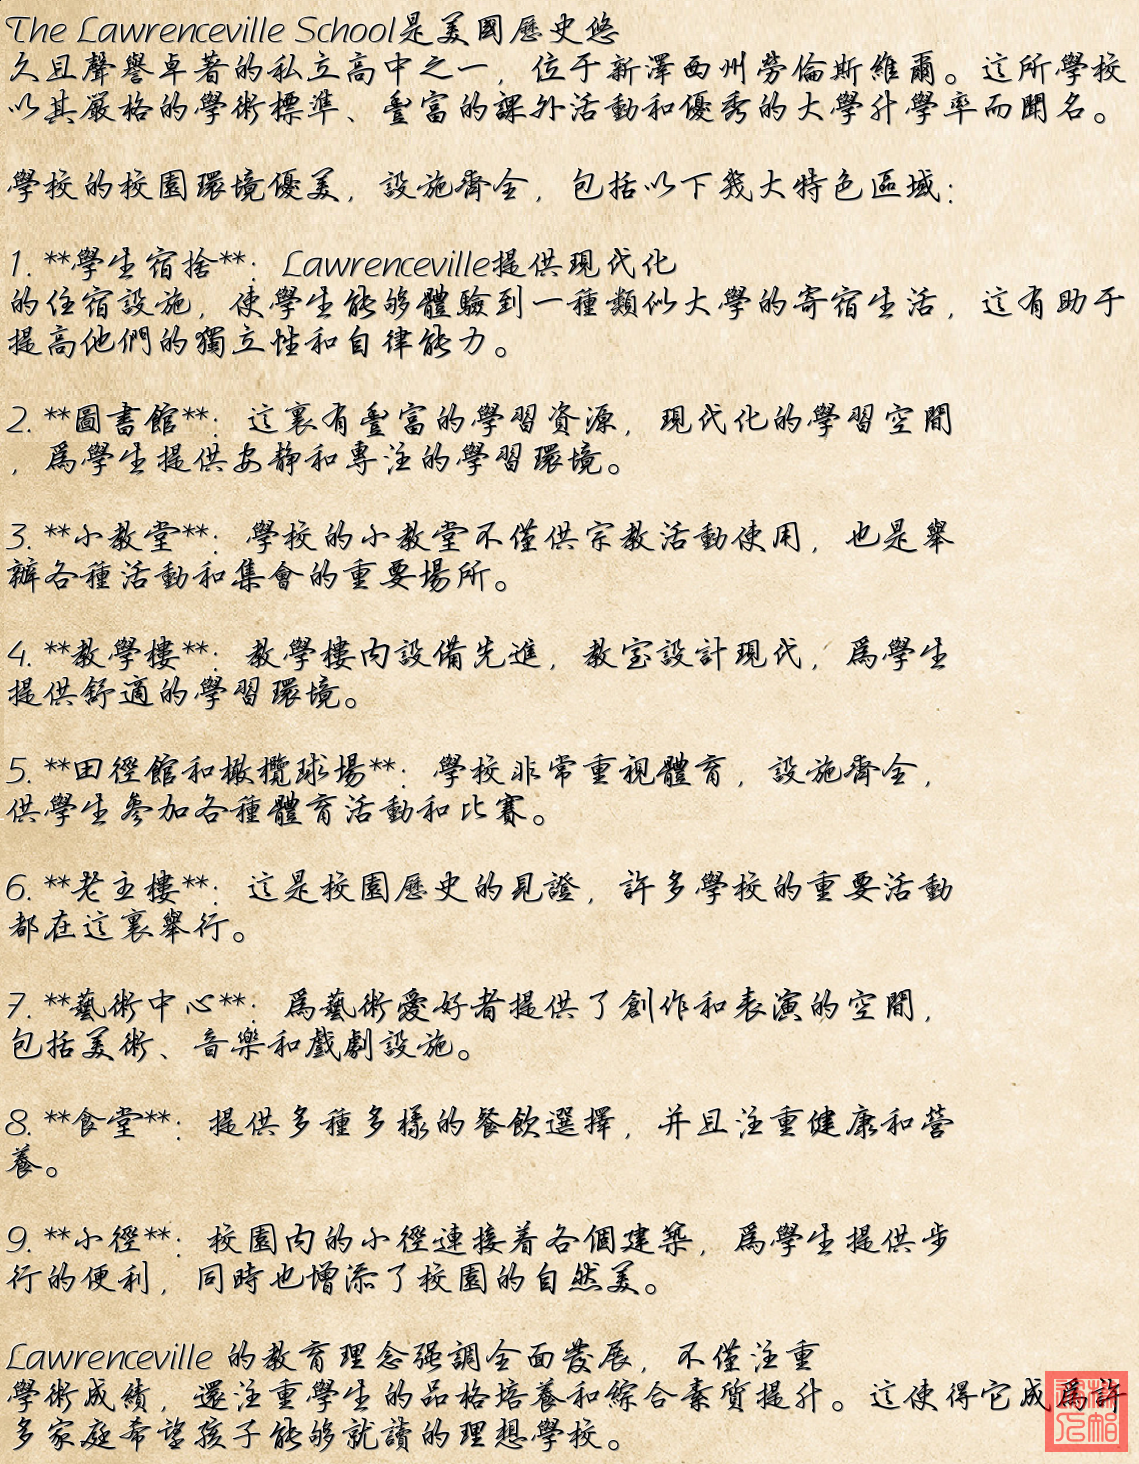 The Lawrenceville School是美國歷史悠
久且聲譽卓著的私立高中之一，位于新澤西州勞倫斯維爾。這所學校
以其嚴格的學術標準、豐富的課外活動和優秀的大學升學率而聞名。
學校的校園環境優美，設施齊全，包括以下幾大特色區域：
1. **學生宿捨**：Lawrenceville提供現代化
的住宿設施，使學生能够體驗到一種類似大學的寄宿生活，這有助于
提高他們的獨立性和自律能力。
2. **圖書館**：這裏有豐富的學習資源，現代化的學習空間
，爲學生提供安靜和專注的學習環境。
3. **小教堂**：學校的小教堂不僅供宗教活動使用，也是舉
辦各種活動和集會的重要場所。
4. **教學樓**：教學樓内設備先進，教室設計現代，爲學生
提供舒適的學習環境。
5. **田徑館和橄欖球場**：學校非常重視體育，設施齊全，
供學生參加各種體育活動和比賽。
6. **老主樓**：這是校園歷史的見證，許多學校的重要活動
都在這裏舉行。
7. **藝術中心**：爲藝術愛好者提供了創作和表演的空間，
包括美術、音樂和戲劇設施。
8. **食堂**：提供多種多樣的餐飲選擇，并且注重健康和營
養。
9. **小徑**：校園内的小徑連接着各個建築，爲學生提供步
行的便利，同時也增添了校園的自然美。
Lawrenceville 的教育理念强調全面發展，不僅注重
學術成績，還注重學生的品格培養和綜合素質提升。這使得它成爲許
多家庭希望孩子能够就讀的理想學校。